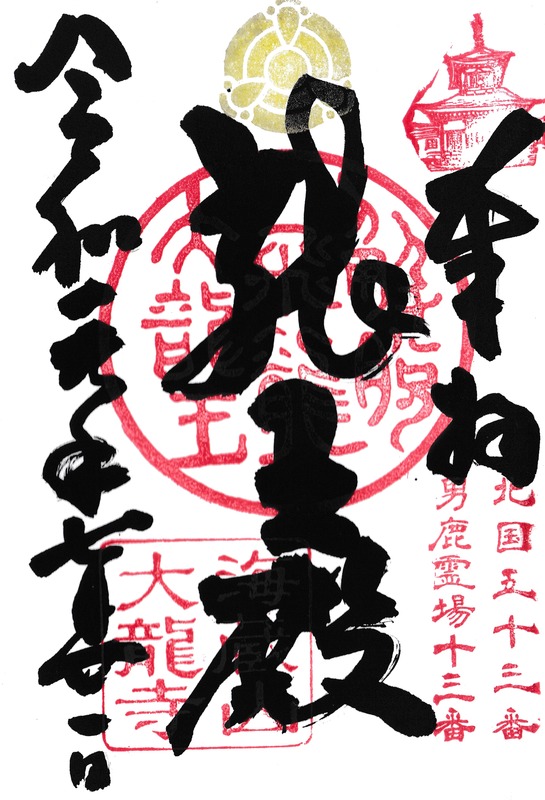 奉拝
北国五十三番
男鹿霊場十三番
龍王殿
大龍王
海蔵山
大龍寺
令和元年七月廿一日